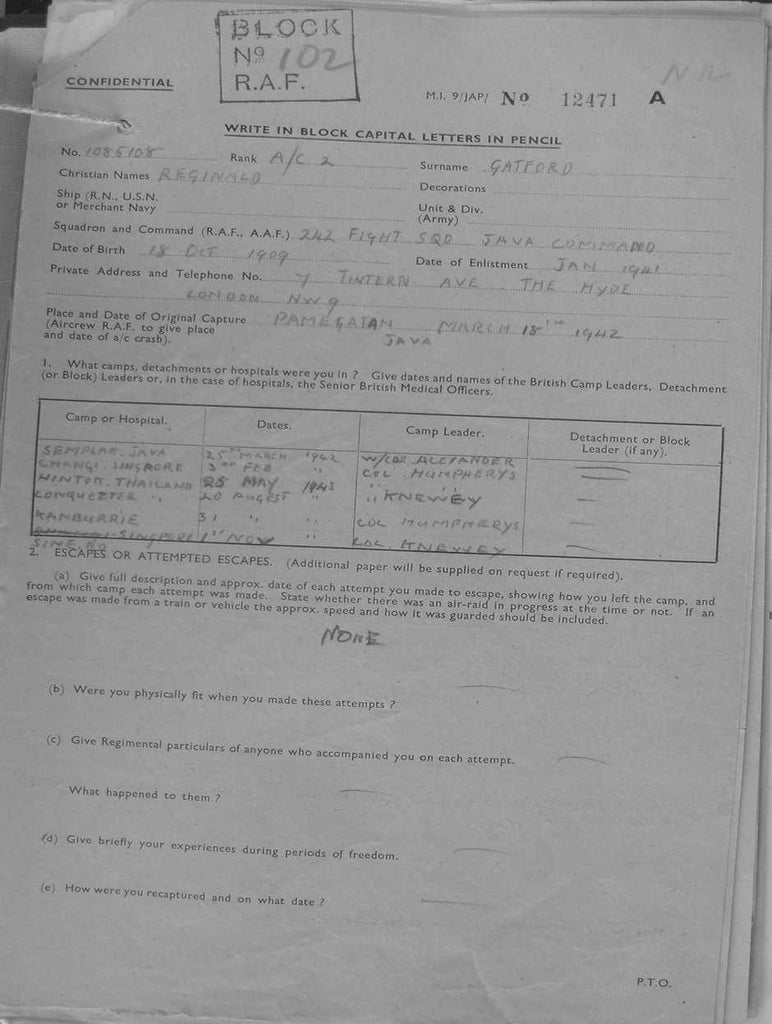 BLOCK
Nº 102
R.A.F.
CONFIDENTIAL
M.I. 9/JAP/ Nº 12471 A
WRITE IN BLOCK CAPITAL LETTERS IN PENCIL
No. 1086108 Rank A/C 2 Surname GATFORD
Christian Names REGINALD Decorations
Ship (R.N., U.S.N. or Merchant Navy Unit & Div. (Army)
Squadron and Command (R.A.F., A.A.F.) 242 FIGHT SQD JAVA COMMAND
Date of Birth 18 OCT 1909 Date of Enlistment JAN 1941
Private Address and Telephone No. 7 TINTERN AVE. THE HYDE
LONDON NW9
Place and Date of Original Capture PAMEGATAN MARCH 18TH 1942
(Aircrew R.A.F. to give place JAVA
and date of a/c crash).
1. What camps, detachments or hospitals were you in ? Give dates and names of the British Camp Leaders, Detachment
(or Block) Leaders or, in the case of hospitals, the Senior British Medical Officers.
Camp or Hospital. Dates. Camp Leader. Detachment or Block Leader (if any).
SEMPLAK. JAVA 25TH MARCH 1942 W/CDR ALEXANDER
CHANGI. SINGPORE 3RD FEB " COL. HUMPHERYS
HINTOK. THAILAND 25 MAY 1943 " "
CONQUETTER " 20 AUGEST " " KNEWEY
KAMBURRIE 31 " " COL HUMPHERYS
SINGPORE 1ST NOV " COL. KNEWEY
SIME RD
2. ESCAPES OR ATTEMPTED ESCAPES. (Additional paper will be supplied on request if required).
(a) Give full description and approx. date of each attempt you made to escape, showing how you left the camp, and
from which camp each attempt was made. State whether there was an air-raid in progress at the time or not. If an
escape was made from a train or vehicle the approx. speed and how it was guarded should be included.
NONE
(b) Were you physically fit when you made these attempts ?
(c) Give Regimental particulars of anyone who accompanied you on each attempt.
What happened to them ?
(d) Give briefly your experiences during periods of freedom.
(e) How were you recaptured and on what date ?
P.T.O.